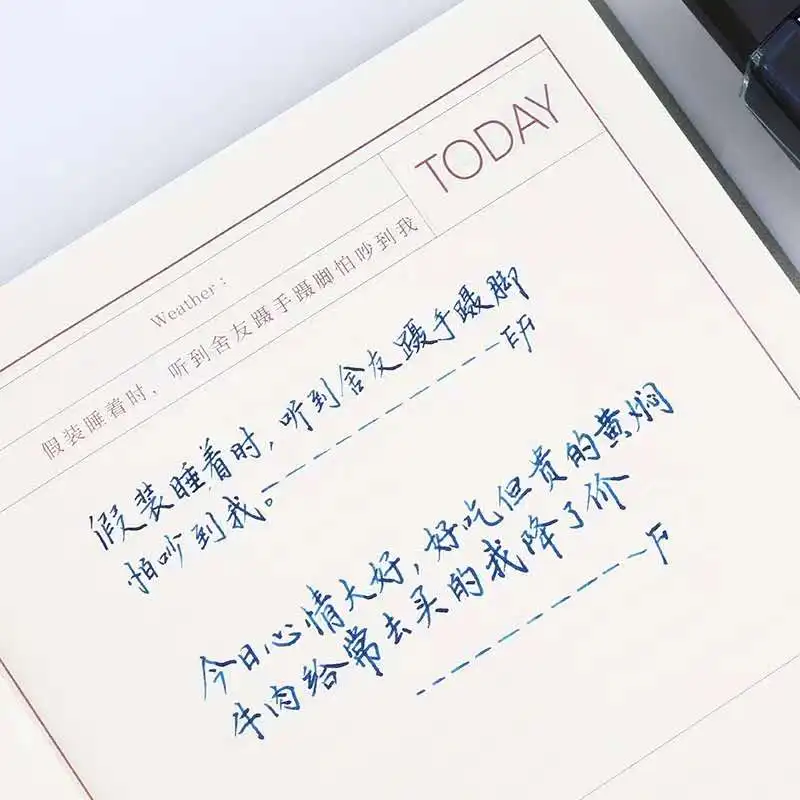 TODAY
Weather:
假装睡着时，听到舍友蹑手蹑脚怕吵到我
假装睡着时，听到舍友蹑手蹑脚
怕吵到我。 EF
今日心情大好，好吃但贵的黄焖
牛肉给常去买的我降了价
F